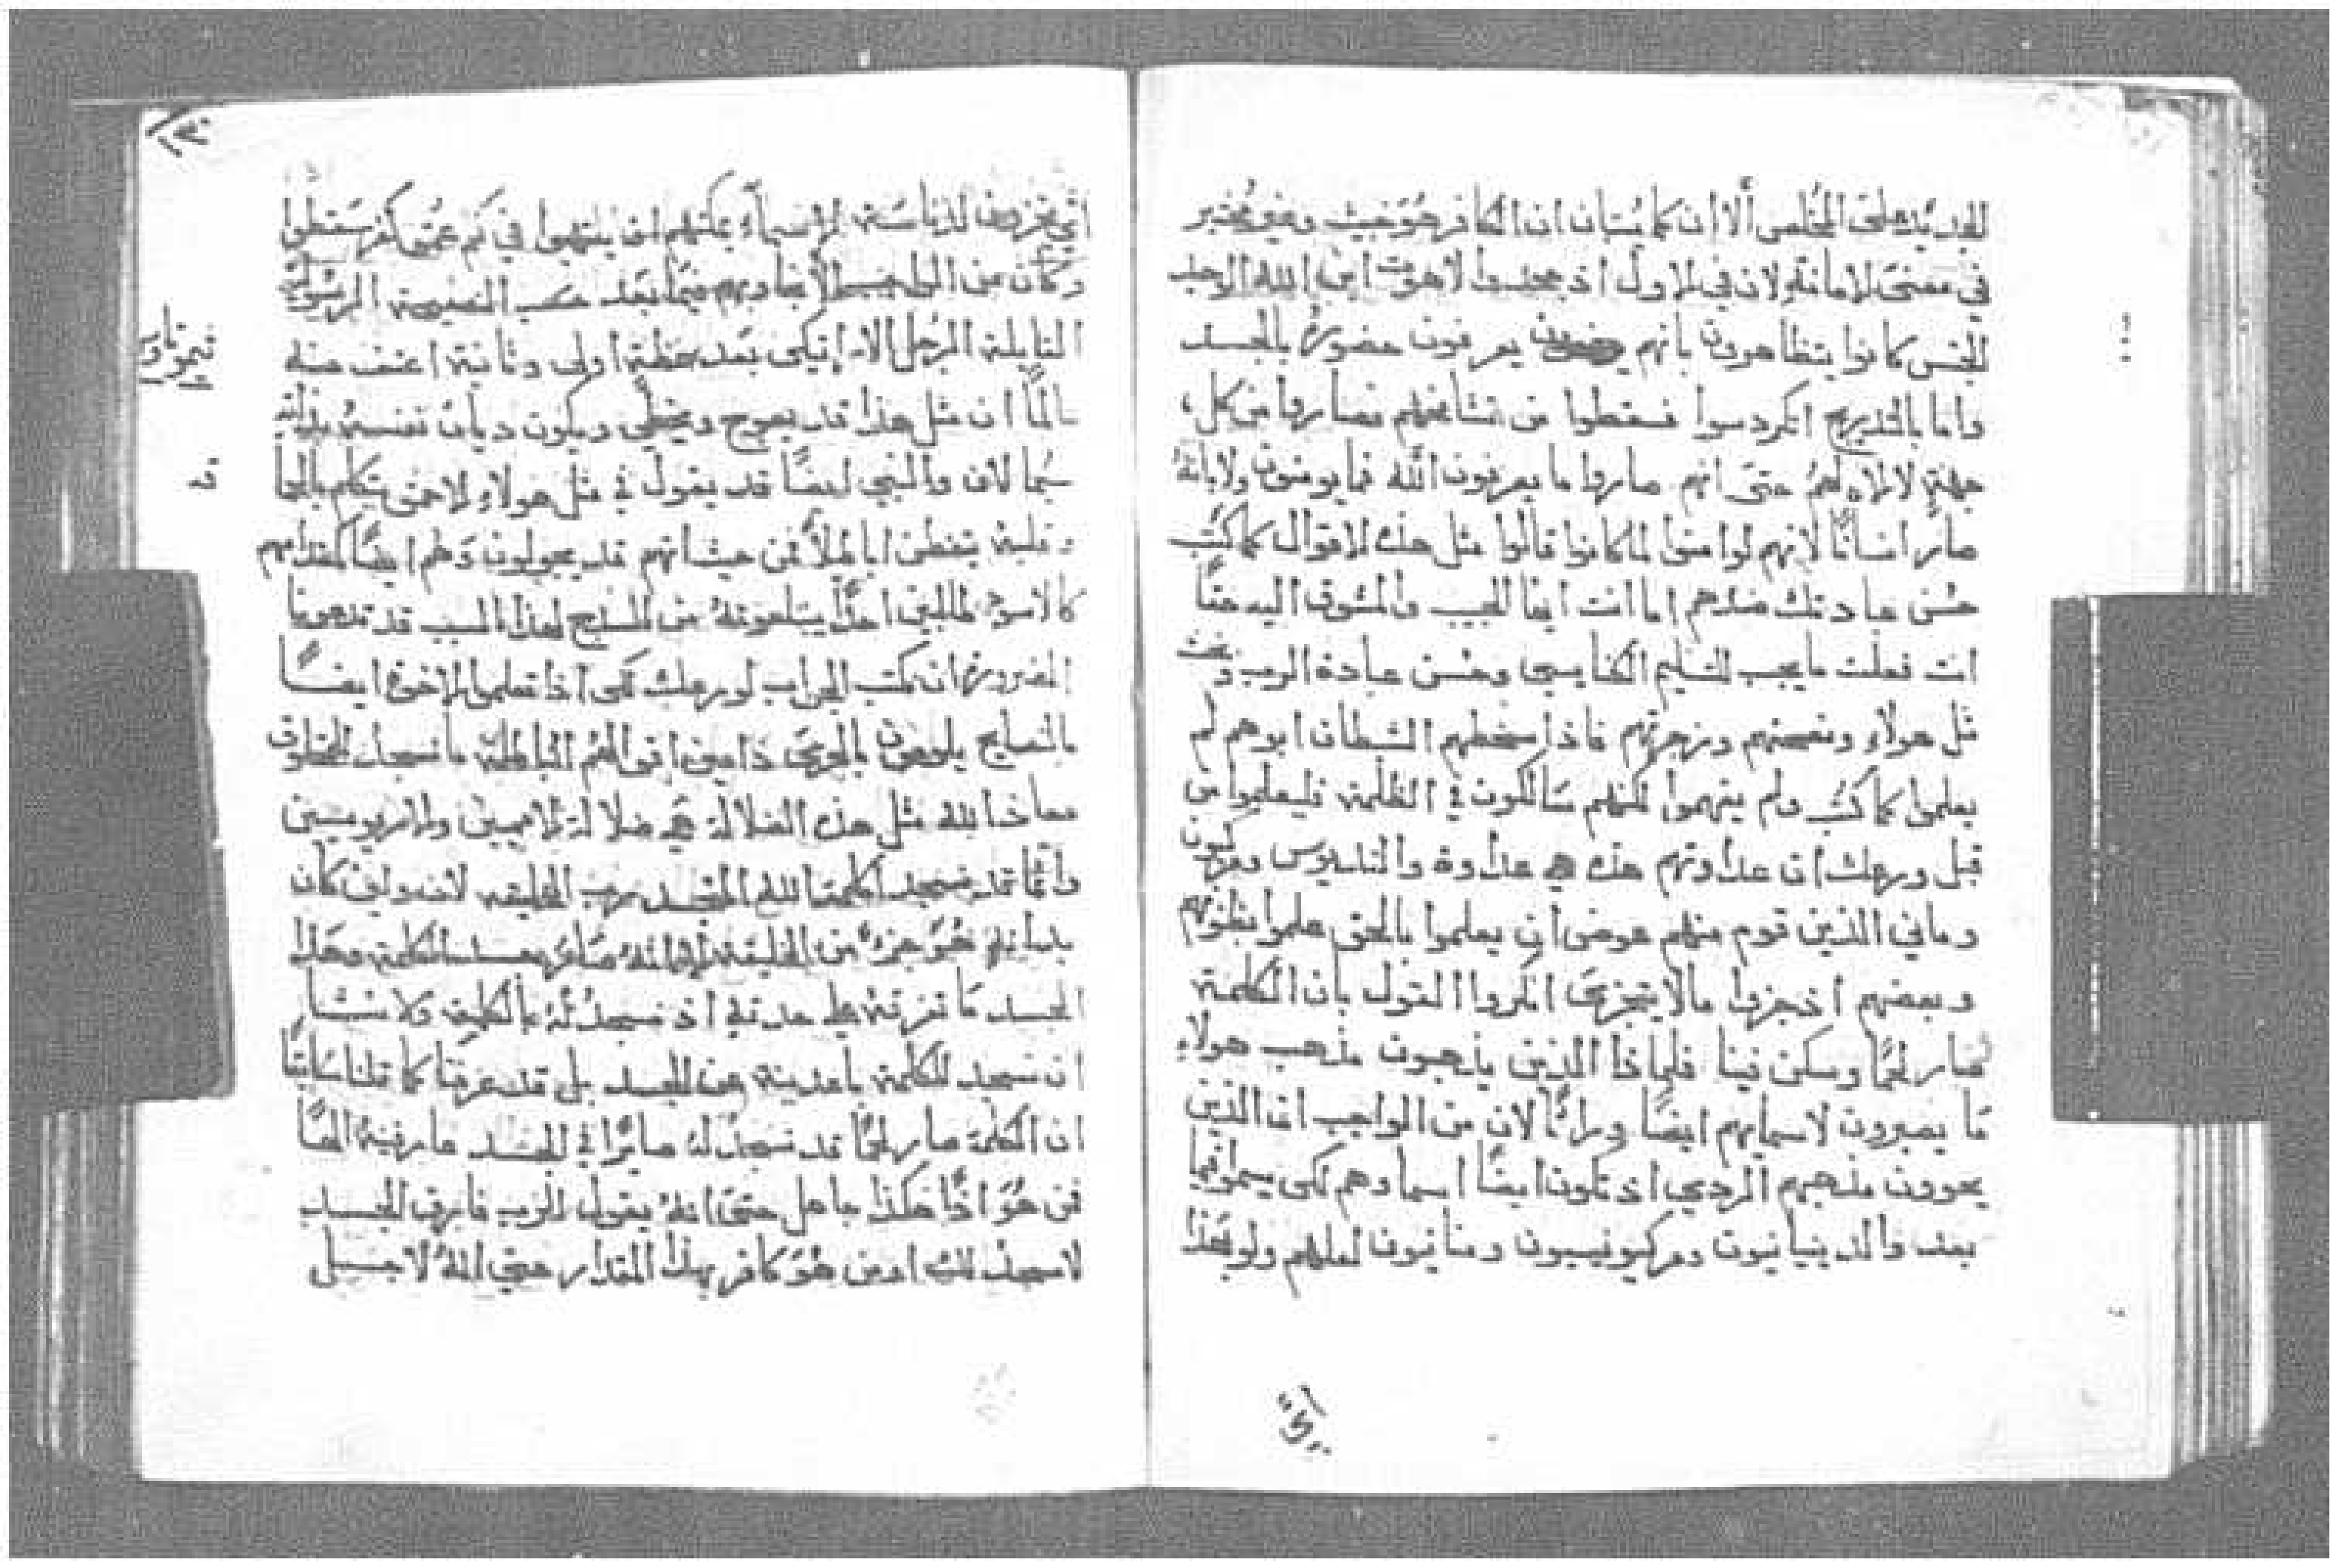 التجديد على المخلص ألا ان كما يُستبان ان الكافر هُوَ خبيث وغير مختبر
في معنى الامانة ولان في الاول اذ جحدوا لاهوت ابن الله الوحيد
الجنس كانوا يتظاهرون بانهم يعرفون حضورهُ بالجسد
واما بالتدريج انكردسوا فسقطوا من تشامخهم فصاروا من كل
جهةٍ لا اله لهم حتى انهم صاروا ما يعرفون الله فما يومنون ولا بانهُ
صار انسانًا لانهم لو امنوا لما كانوا قالوا مثل هذه الاقوال كما كتب
حُسن عبادتك ضدهم اما انت ايها الحبيب والمشوق اليه حقًا
انت فعلت ما يجب للتسليم الكنايسي وحُسن عبادة الرب وبخت
مثل هولاءِ ونصحتهم وزجرتهم فاذا سخطهم الشيطان ابوهم لم
يعلموا كما كُتب ولم يفهموا لكنهم سالكون في الظلمة فليعلموا من
قبل ورعك ان عداوتهم هذه هي عداوة والنتينوس ومركيون
وماني الذين قوم منهم عوض ان يعلموا بالحق علموا بظنونهم
وبعضهم اذ جزوا ما لا يتجزى انكروا القول بان الكلمة
صار لحمًا وسكن فينا فلماذا الذين يذهبون مذهب هولاءِ
مَا يصيرون لاسمايهم ايضًا وراثًا لان من الواجب ان الذين
يحوون مذهبهم الردي اذ تكون ايضًا اسماوهم لكى يسموا فيما
بعد والنتينيانيون ومركيونيون ومنانيون لعلهم ولو بهذا
١٣٠
اذ يخزون لدناسة الاسماءِ يمكنهم ان يفهموا في كم عمق كفر سَقطوا
وكان من الواجب الا نجاوبهم فيما بعد حسب النصيحة الرسُولية
القايلة الرجل الاراتيكي بعد عظة اولى وثانية اعنف عنه
عالمًا ان مثل هذا قد يعوج ويخطى ويكون ديان نفسهُ بذاته
سيما لان والنبي ايضًا قد يقول في مثل هولاءِ الاحمق يتكلم بالحما
وقلبهُ يتفطن اباطيلاً فمن حيث انهم قد يجولون وهم ايضًا كمقدامهم
كالاسود طالبين احدًا يبتلعونهُ من السذج لهذا السبب قد تدعونا
الضرورة ان نكتب الجواب لورعك لكى اذا تعلموا الاخوة ايضًا
بالنصايح يلومون بالحري ذامين اقوالهم الباطلة ما نسجد لمخلوق
معاذ الله مثل هذه الضلالة هي ضلالة الامميين والاريوسيين
وانما قد نسجد لكلمة الله المتجسد رب الخليقه لانه ولين كان
الجسد بذاته هُوَ جزءٌ من الخليقة الا انهُ صار جسد الكلمة وهذا
الجسد مَا نفرقهُ على حدته اذ نسجد لهُ بالكلمة ولا نشا
ان نسجد للكلمة باعدينه عن الجسد بل قد عرفنا كما قلنا سَابقًا
ان الكلمة صار لحمًا قد نسجد لهُ صايرًا في الجسد عارفينهُ الهًا
فمن هُوَ اذًا هكذا جاهل حتى انهُ يقول للرب فارق الجسد
لاسجد لك او من هُوَ كافر بهذا المقدار حتى انهُ لاجل
تيموثاوس